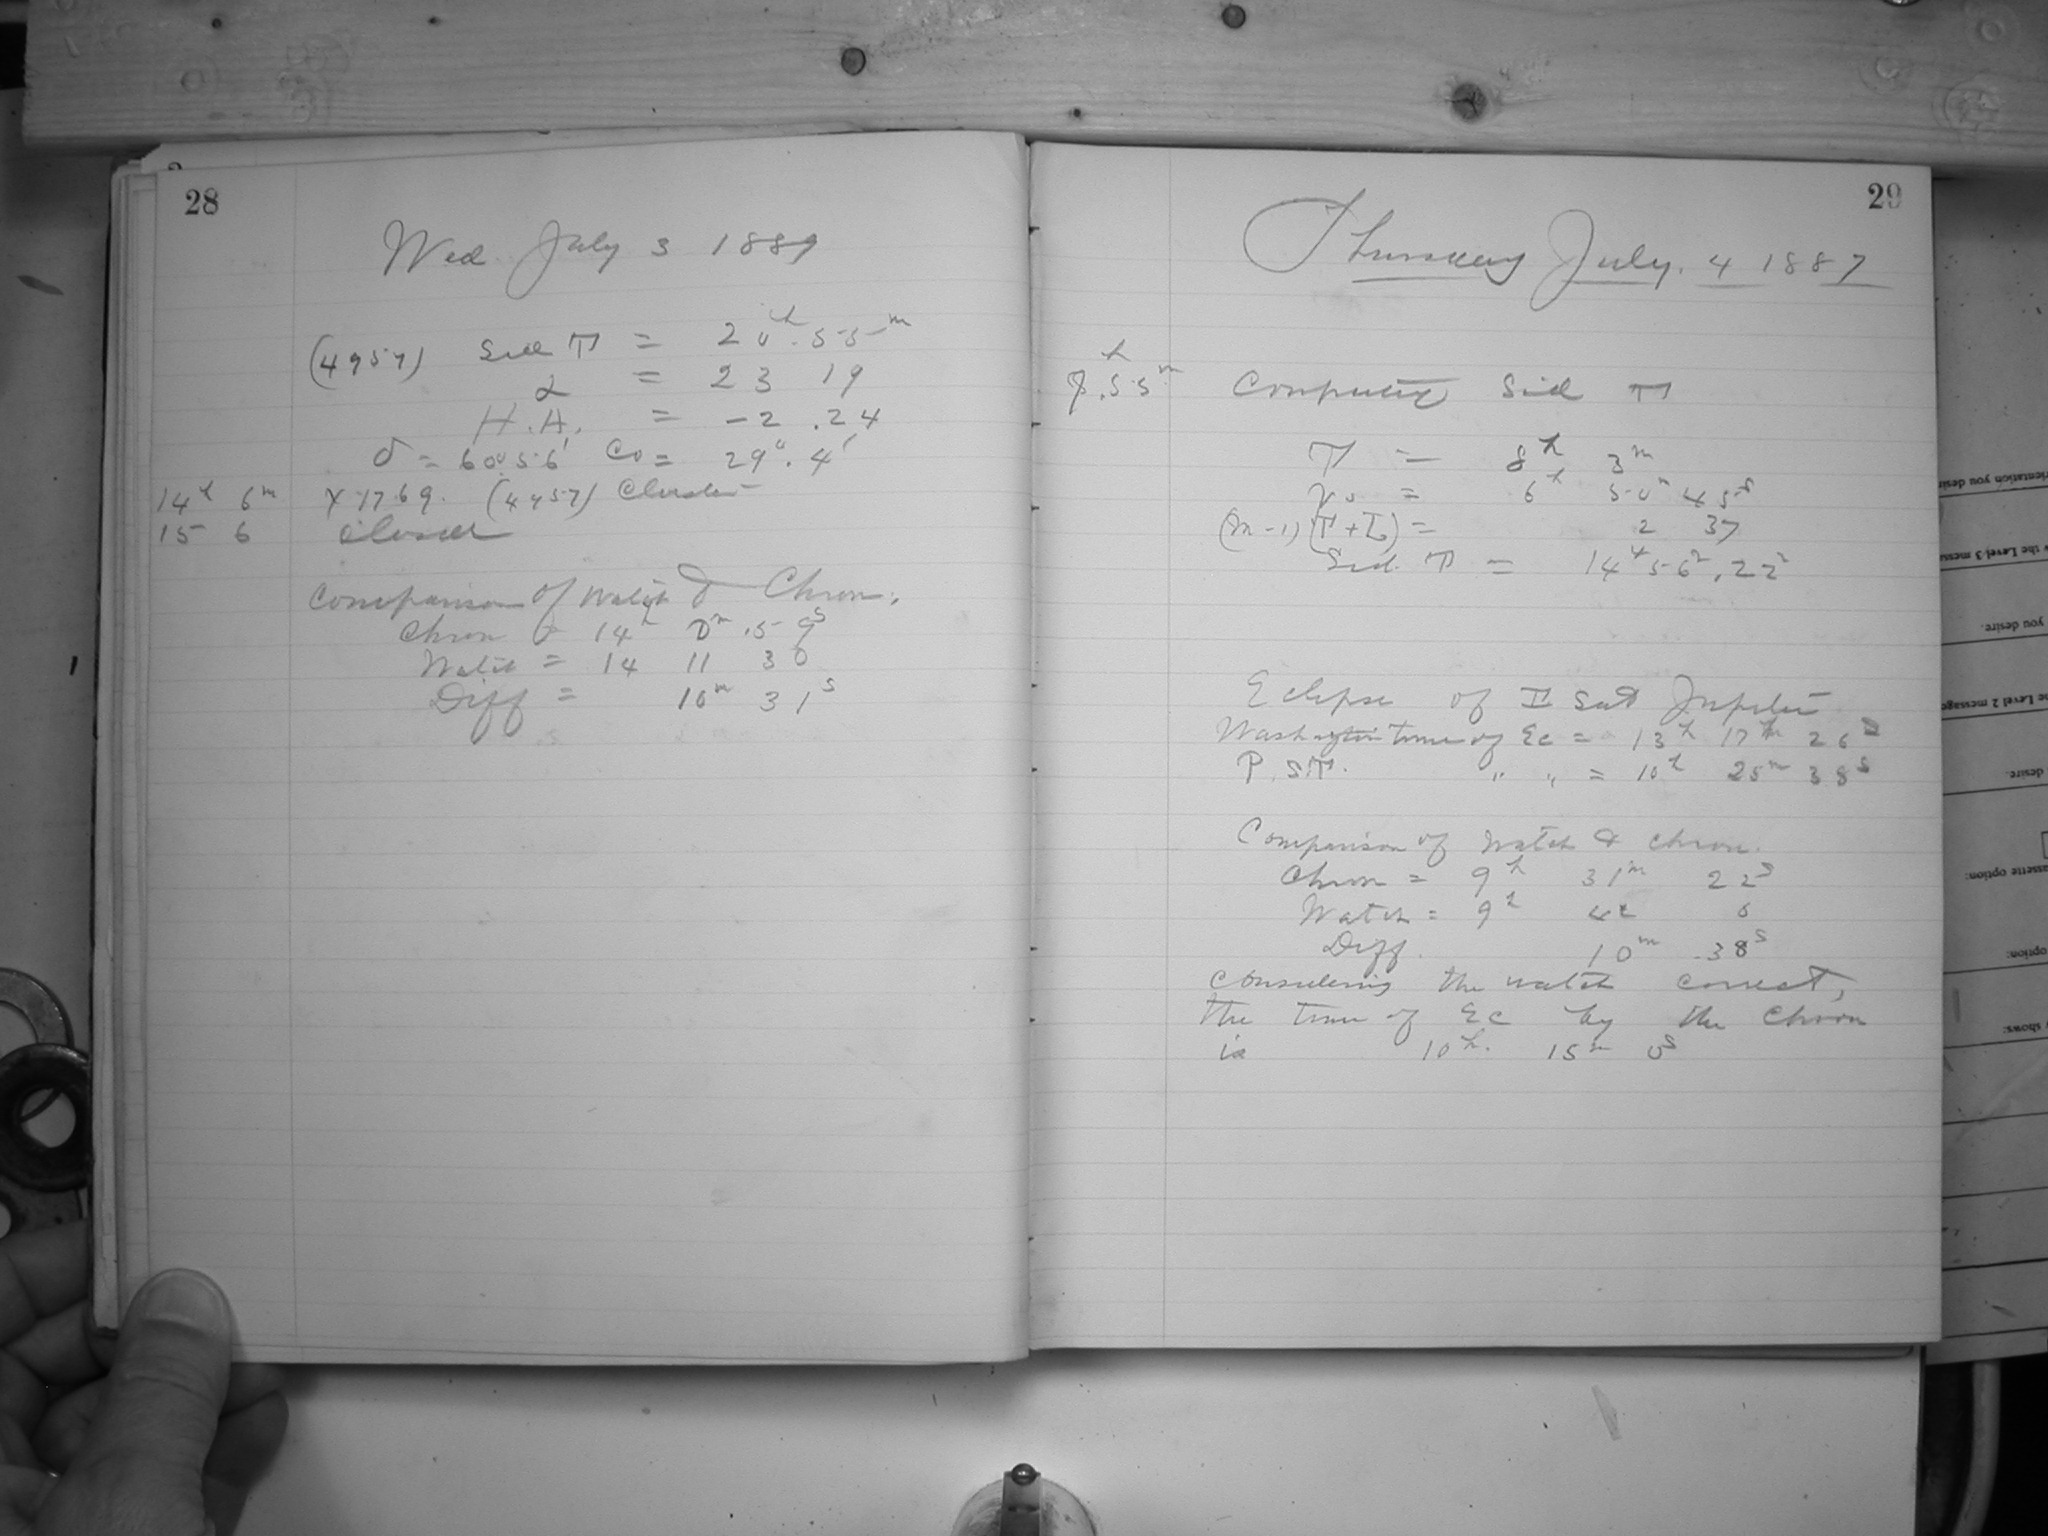 28
Wed July 3 1889
(4957) Sid T = 20h.55m
α = 23 19
H.A. = -2.24
δ = 60°56' Co = 29°.4'
14h 6m X.1769. (4957) Clouds
15 6 Closed
Comparison of Watch & Chron.
Chron = 14h 0m .59s
Watch = 14 11 30
Diff = 10m 31s
29
Thursday July. 4 1887
7h.55m Computing Sid T
T = 8h 3m
Vo = 6h 50m 45s
(m-1)(T+L) = 2 37
Sid. T = 14h 56m.22s
Eclipse of II Sat Jupiter
Washington time of Ec = 13h 17m 26s
P.S.T. " " = 10h 25m 38s
Comparison of Watch & chron.
Chron = 9h 31m 22s
Watch = 9h 42 0
Diff. 10m 38s
Considering the watch correct,
the time of Ec by the Chron
is 10h. 15m 0s
orientation you desir
the Level 3 messa
you desire.
he Level 2 message
desire.
assette option:
option:
shows: